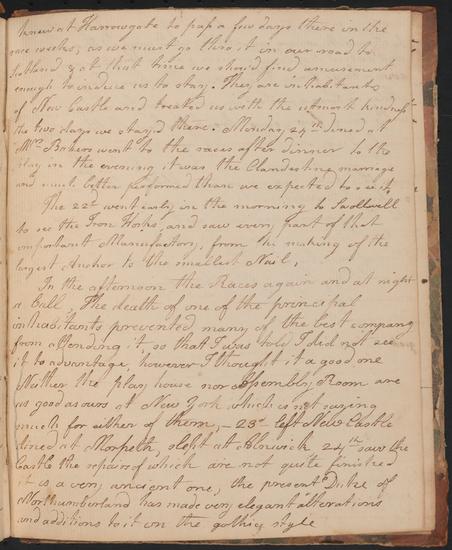 knew at Harrowgate to pass a few days there in the
race weeks, as we must go thro' it in our road to
Scotland & at that time we should find amusement
enough to induce us to stay. They are inhabitants
of New Castle and treated us with the utmost kindness
the two days we stay'd there. Monday 21st dined at
Mrs. Bakers went to the races after dinner to the
Play in the evening it was the Clandestine marriage
and much better performed than we expected to see it,
The 22d went early in the morning to Swolwell
to see the Iron Works, and saw every part of that
important Manufactory, from the making of the
largest Anchor to the smallest Nail,
In the afternoon the Races again and at night
a Ball, The death of one of the principal
inhabitants prevented many of the best company
from attending it, so that I was told I did not see
it to advantage, however I thought it a good one
Neither the play house nor assembly Room are
as good as ours at New York which is not saying
much for either of them, – 23d left New Castle
dined at Morpeth, slept at Alnwick 24th saw the
Castle the repairs of which are not quite finished
it is a very ancient one, the present Duke of
Northumberland has made very elegant alterations
and additions to it in the gothic style